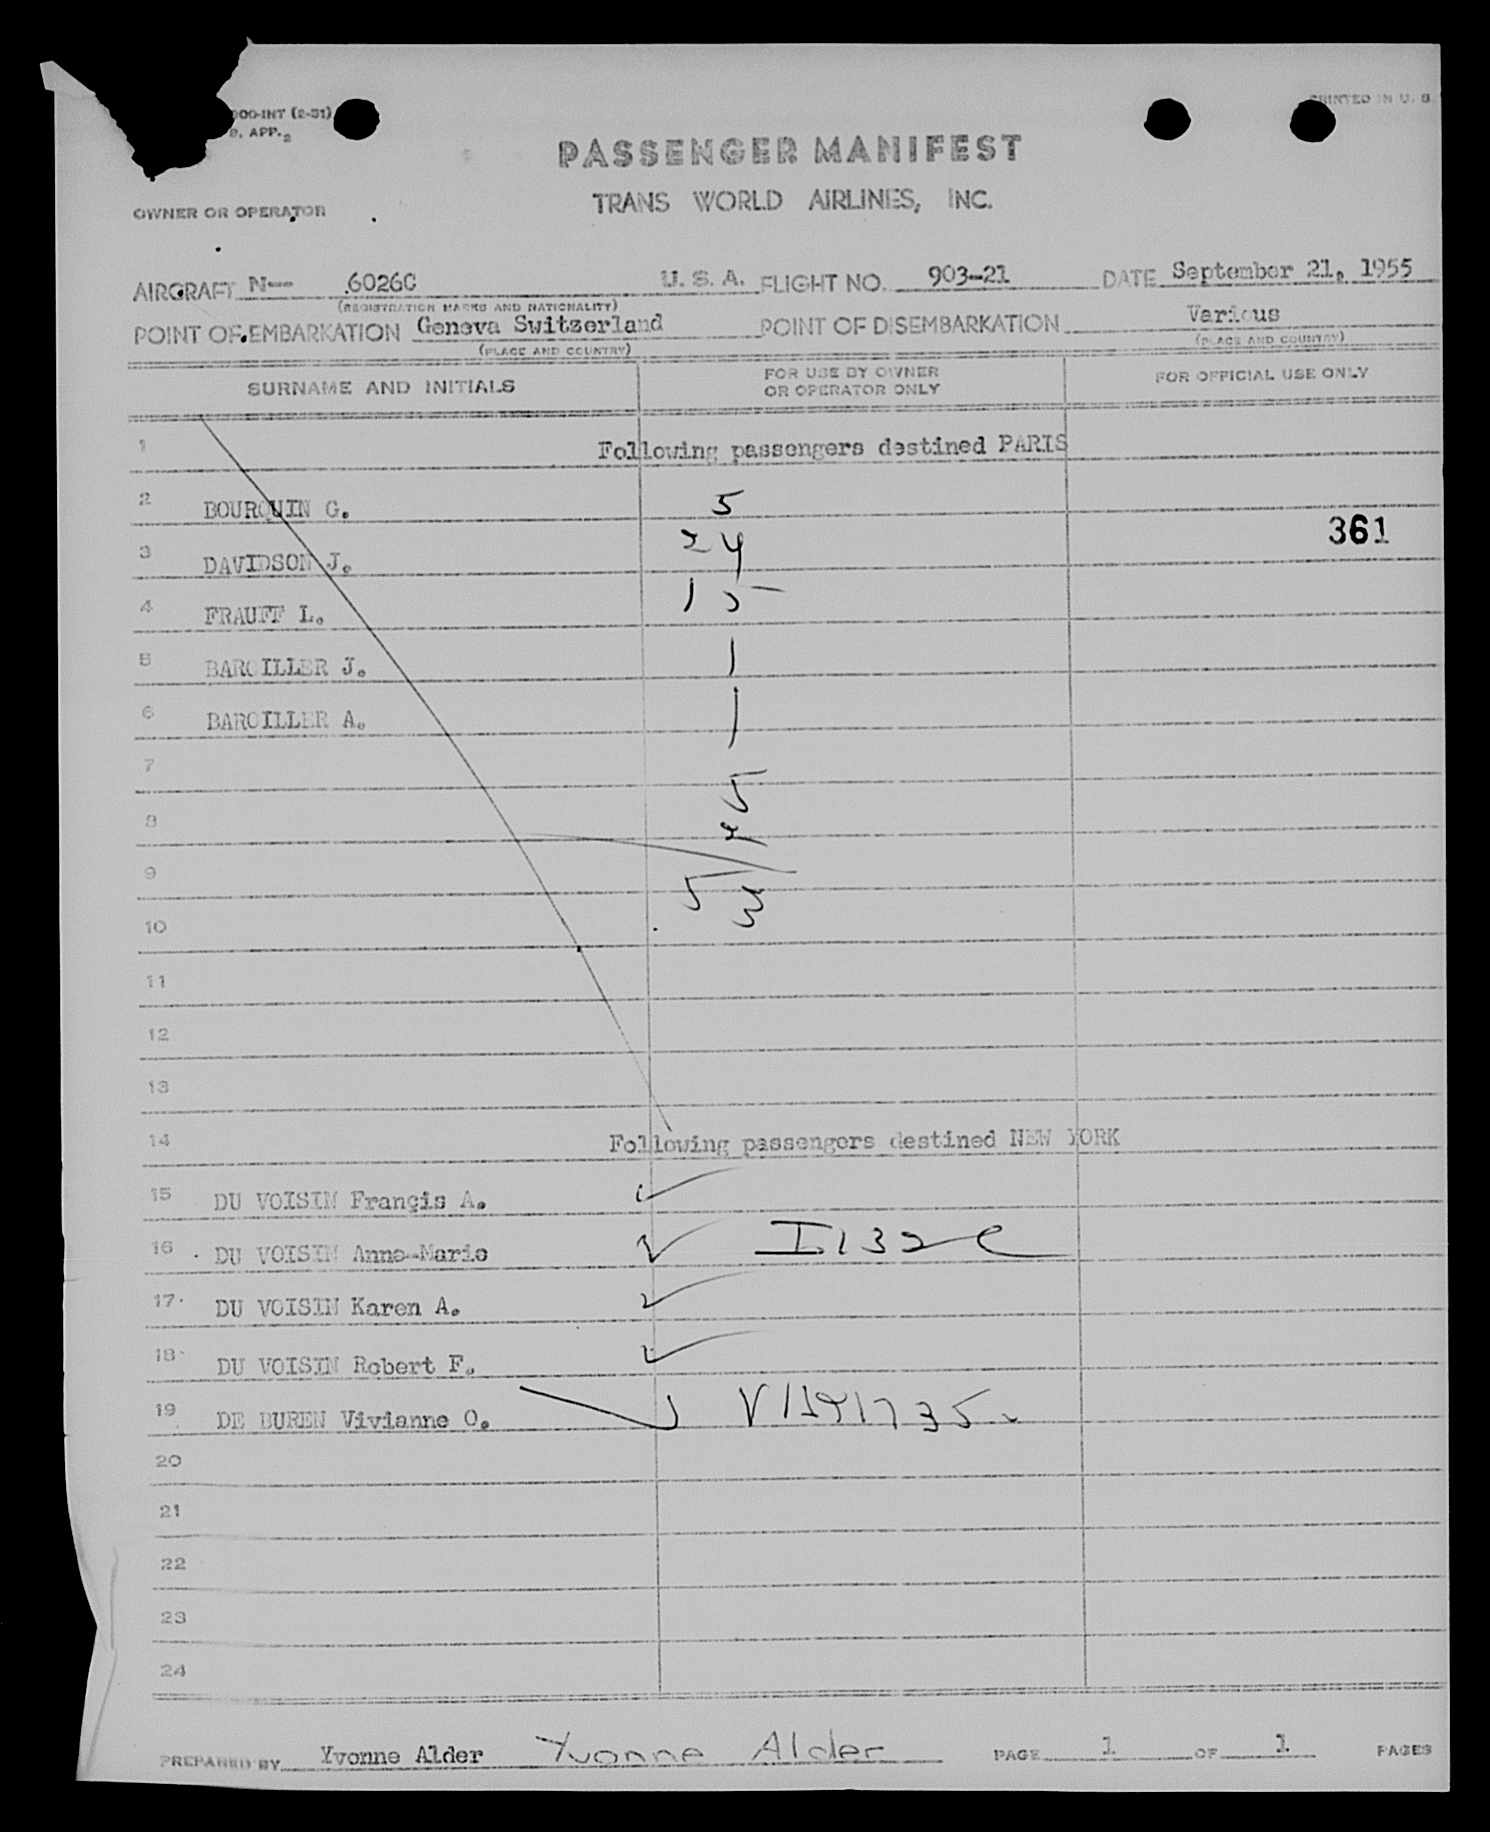 000-INT (2-51)
PRINTED IN U. S.
9, APP. 2
PASSENGER MANIFEST
TRANS WORLD AIRLINES, INC.
OWNER OR OPERATOR
AIRCRAFT N-- 6026C U. S. A. FLIGHT NO. 903-21 DATE September 21, 1955
(REGISTRATION MARKS AND NATIONALITY)
POINT OF EMBARKATION Geneva Switzerland POINT OF DISEMBARKATION Various
(PLACE AND COUNTRY) (PLACE AND COUNTRY)
SURNAME AND INITIALS FOR USE BY OWNER OR OPERATOR ONLY FOR OFFICIAL USE ONLY
1 Following passengers destined PARIS
2 BOURQUIN G. 5
361
3 DAVIDSON J. 24
4 FRAUFF L. 15
5 BARCILLER J. 1
6 BARCILLER A. 1
7
8
9
10
11
12
13
14 Following passengers destined NEW YORK
15 DU VOISIN Françis A.
16 DU VOISIN Anne-Marie I132e
17 DU VOISIN Karen A.
18 DU VOISIN Robert F.
19 DE BUREN Vivianne O.
20
21
22
23
24
PREPARED BY Yvonne Alder Yvonne Alder PAGE 1 OF 1 PAGES